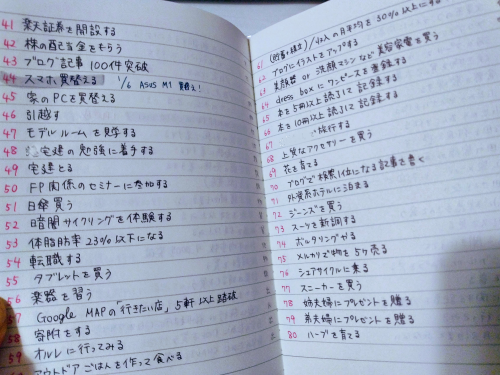 41 楽天証券を開設する
42 株の配当金をもらう
43 ブログ記事 100件突破
44 スマホ買替える 1/6 ASUS M1 買え!
45 家のPCを買替える
46 引越す
47 モデルルームを見学する
48 宅建の勉強に着手する
49 宅建とる
50 FP関係のセミナーに参加する
51 日傘買う
52 暗闇サイクリングを体験する
53 体脂肪率 23%以下になる
54 転職する
55 タブレットを買う
56 楽器を習う
57 Google MAPの「行きたい店」5軒以上踏破
58 寄附をする
59 オルレに行ってみる
アウトドアごはんを作って食べる
61 (貯蓄+積立)/収入の月平均を30%以上にする
62 ブログにイラストをアップする
63 美顔器 or 洗顔マシンなど美容家電を買う
64 dress boxにワンピースを登録する
65 本を5冊以上読了&記録する
66 本を10冊以上読了&記録する
67 旅行する
68 上質なアクセサリーを買う
69 花を育てる
70 ブログで検索1位になる記事を書く
71 外資系ホテルに泊まる
72 ジーンズを買う
73 スーツを新調する
74 ボルダリングやる
75 メルカリで物を5ヶ売る
76 シェアサイクルに乗る
77 スニーカーを買う
78 姉夫婦にプレゼントを贈る
79 弟夫婦にプレゼントを贈る
80 ハーブを育てる